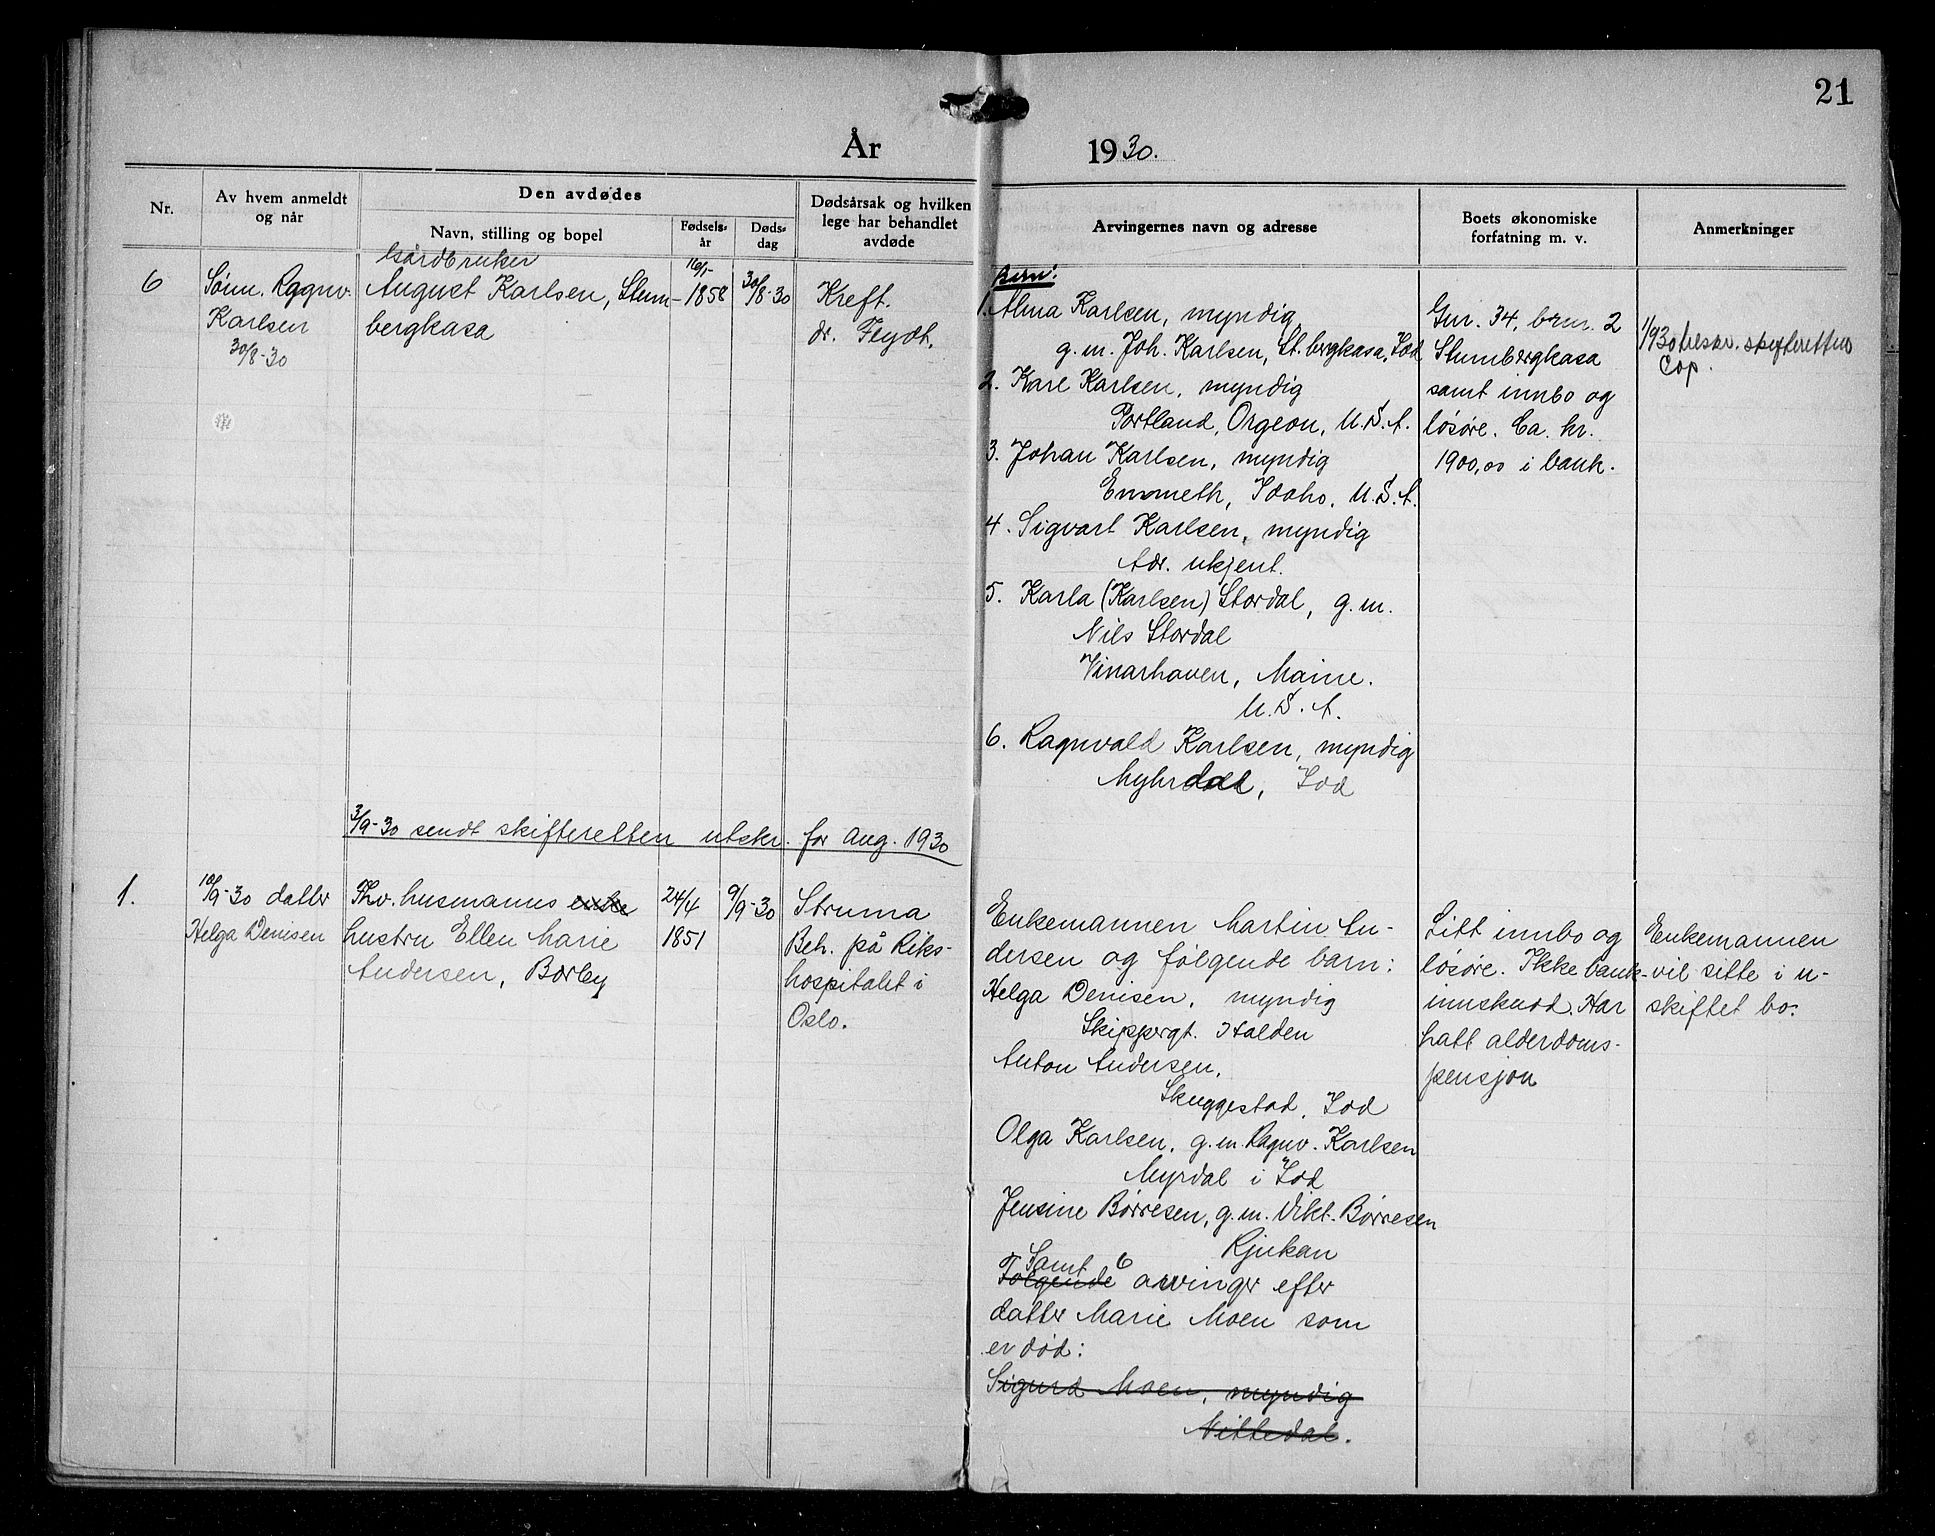 21
År 1930.
Nr.
Av hvem anmeldt
og når
Den avdødes
Navn, stilling og bopel
Fødsels-
år
Døds-
dag
Dødsårsak og hvilken
lege har behandlet
avdøde
Arvingernes navn og adresse
Boets økonomiske
forfatning m. v.
Anmerkninger
6
Sønn. Ragnv.
Karlsen
30/8-30
Gårdbruker
August Karlsen, Stum-
bergkasa
16/1-
1858
30/8-30
Kreft.
dr. Feydt.
Barn:
1. Alma Karlsen, myndig
g.m. Joh. Karlsen, St.bergkasa, Idd
2. Karl Karlsen, myndig
Portland, Orgeon, U.S.A.
3. Johan Karlsen, myndig
Emmeth, Idaho, U.S.A.
4. Sigvart Karlsen, myndig
Adr. ukjent.
5. Karla (Karlsen) Stordal, g.m.
Nils Stordal
Vinarhaven, Maine.
U.S.A.
6. Ragnvald Karlsen, myndig
Myhrdal, Idd
Gnr. 34, brnr. 2
Stumbergkasa
samt innbo og
løsøre. Ca. kr.
1900,00 i bank.
1/9 30 tilskr. skifteretten
Cop.
3/9-30 sendt skifteretten utskr. for Aug. 1930
1.
10/9-30 datter
Helga Denisen
Fhv. husmanns enke
hustru Ellen Marie
Andersen, Borby
24/4
1851
9/9-30
Struma
Beh. på Riks-
hospitalet i
Oslo.
Enkemannen Martin An-
dersen og følgende barn:
Helga Denisen, myndig
Skippergt. Halden
Anton Andersen,
Skuggestad, Idd
Olga Karlsen, g.m. Ragnv. Karlsen
Myrdal i Idd
Jensine Børresen, g.m. Vikt. Børresen
Rjukan
Samt 6
Følgende arvinger efter
datter Marie Moen som
er død:
Sigurd Moen, myndig
Nittedal.
Litt innbo og
løsøre. Ikke bank-
innskudd. Har
hatt alderdoms-
pensjon
Enkemannen
vil sitte i u-
skiftet bo.